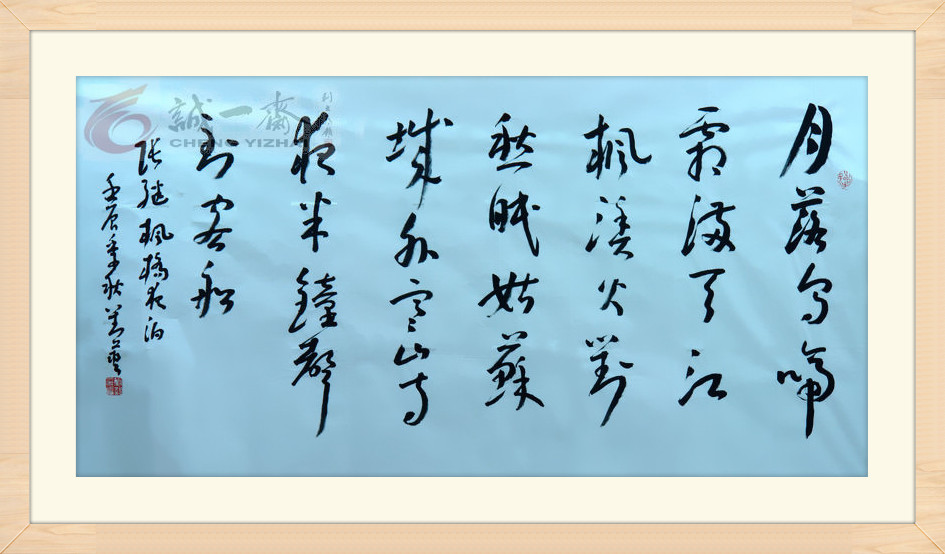 月落烏啼
霜满天江
楓漁火對
愁眠姑蘇
城外寒山寺
夜半鐘聲
到客船
张继楓橋夜泊
壬辰季秋
誠一齋
CHENG YIZHAI